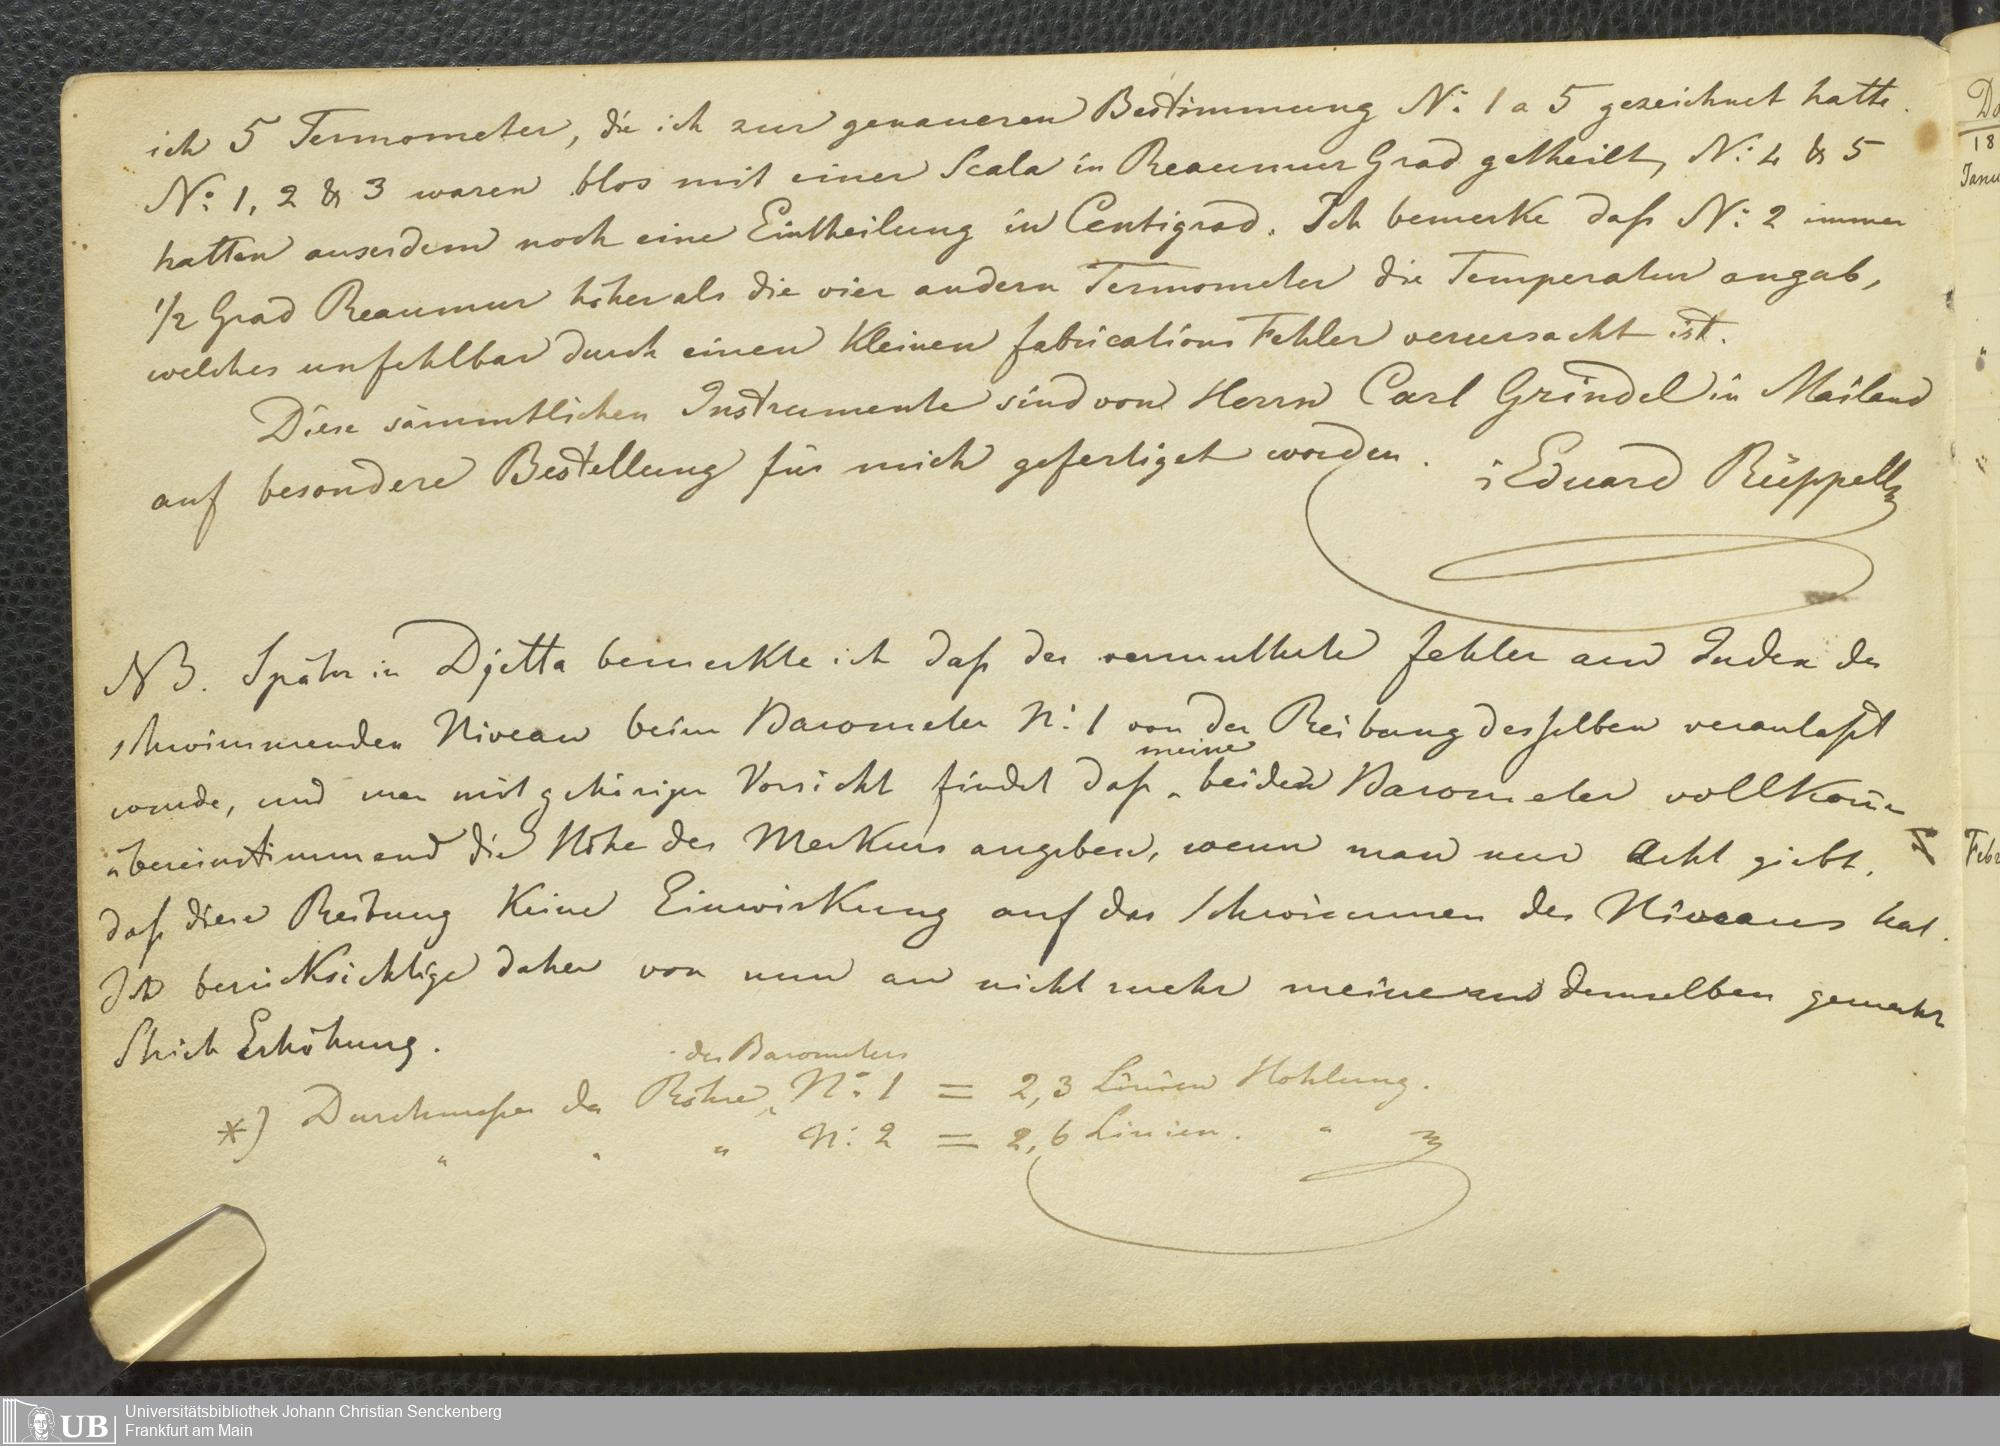 ich 5 Termometer, die ich zur genaueren Bestimmung N: 1 a 5 gezeichnet hatte.
N: 1, 2 & 3 waren blos mit einer Scala in Reaumur Grad getheilt, N: 4 & 5
hatten auserdem noch eine Eintheilung in Centigrad. Ich bemerke daß N: 2 immer
1/2 Grad Reaumur höher als die vier andern Termometer die Temperatur angab,
welches unfehlbar durch einen kleinen fabrications Fehler verursacht ist.
Diese sämmtlichen Instrumente sind von Herrn Carl Grindel in Mailand
auf besondere Bestellung für mich gefertiget worden.
Eduard Rüppell
NB. Später in Djetta bemerkte ich daß der vermuthete fehler am Index des
schwimmenden Niveau beim Barometer N: 1 von der Reibung desselben veranlaßt
wurde, und man mit gehöriger Vorsicht findet daß meine beiden Barometer vollkom̅en
übereinstimmend die Höhe des Merkurs angeben, wenn man nur Acht giebt,
daß diese Reibung keine Einwirkung auf das Schwimmen des Niveaus hat.
Ich berücksichtige daher von nun an nicht mehr meine an demselben gemachte
Strich Erhöhung.
*) Durchmeßer der Röhre des Barometers N: 1 = 2,3 Linien Hohlung.
" " " N: 2 = 2,6 Linien. "
Do
18
Janu
Febr
UB
Universitätsbibliothek Johann Christian Senckenberg
Frankfurt am Main